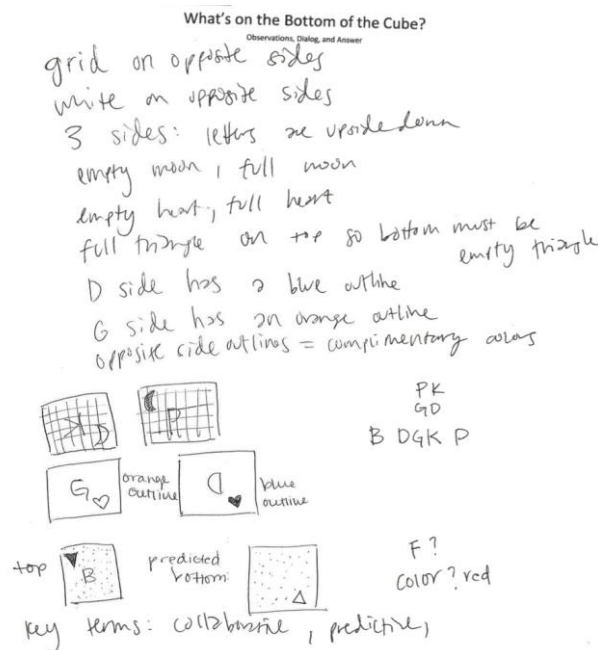 What's on the Bottom of the Cube?
Observations, Dialog, and Answer
grid on opposite sides
white on opposite sides
3 sides: letters are upside down
empty moon, full moon
empty heart, full heart
full triangle on top so bottom must be
empty triangle
D side has a blue outline
G side has an orange outline
opposite side outlines = complimentary colors
K P
PK
GD
B DGK P
G orange outline D blue outline
top B predicted bottom:
F?
color? red
key terms: collaborative, predictive,